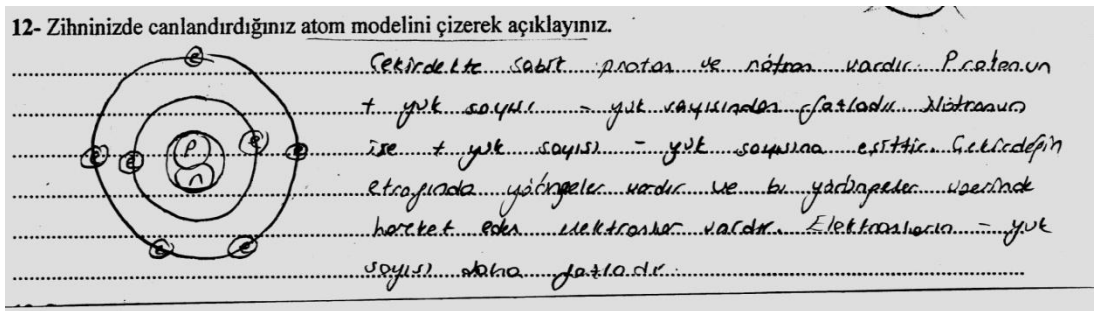 12- Zihninizde canlandırdığınız atom modelini çizerek açıklayınız.
e
Çekirdekte sabit proton ve nötron vardır. Protonun
+ yük sayısı - yük sayısından fazladır. Nötronun
e e e e
p
n
ise + yük sayısı - yük sayısına eşittir. Çekirdeğin
etrafında yörüngeler vardır ve bu yörüngeler üzerinde
hareket eden elektronlar vardır. Elektronların - yük
e e
sayısı daha fazladır.